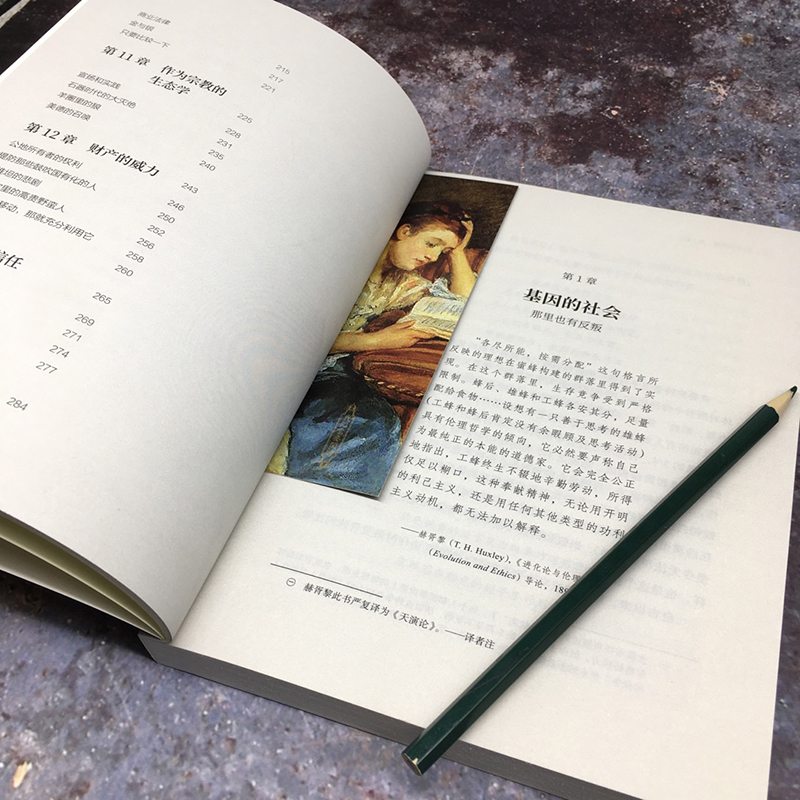 商业法律
金与银
只要比较一下
215
217
221
第11章 作为宗教的
生态学
225
宣扬和实践
228
石器时代的大灭绝
231
羊圈里的狼
235
美德的召唤
240
第12章 财产的威力
243
公地所有者的权利
246
提防那些鼓吹国有化的人
250
的悲剧
252
里的高贵野蛮人
256
移动，那就充分利用它
258
260
信任
265
269
271
274
277
284
第1章
基因的社会
那里也有反叛
“各尽所能，按需分配”这句格言所
反映的理想在蜜蜂构建的群落里得到了实
现。在这个群落里，生存竞争受到严格
限制。蜂后、雄蜂和工蜂各安其分，足量
配给食物……设想有一只善于思考的雄蜂
（工蜂和蜂后肯定没有余暇顾及思考活动）
具有伦理哲学的倾向，它必然要声称自己
为最纯正的本能的道德家。它会完全公正
地指出，工蜂终生不辍地辛勤劳动，所得
仅足以糊口，这种奉献精神，无论用开明
的利己主义，还是用任何其他类型的功利
主义动机，都无法加以解释。
——赫胥黎（T. H. Huxley），《进化论与伦理
（Evolution and Ethics）导论，18
㊀ 赫胥黎此书严复译为《天演论》。——译者注